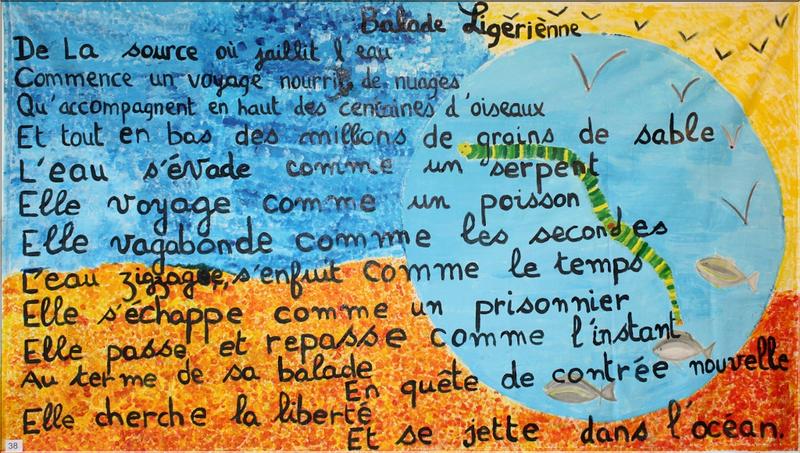 Balade Ligérienne
De La source où jaillit l'eau
Commence un voyage nourrit de nuages
Qu'accompagnent en haut des centaines d'oiseaux
Et tout en bas des millions de grains de sable
L'eau s'évade comme un serpent
Elle voyage comme un poisson
Elle vagabonde comme les secondes
L'eau zigzague, s'enfuit comme le temps
Elle s'échappe comme un prisonnier
Elle passe et repasse comme l'instant
Au terme de sa balade
En quête de contrée nouvelle
Elle cherche la liberté
Et se jette dans l'océan.
38